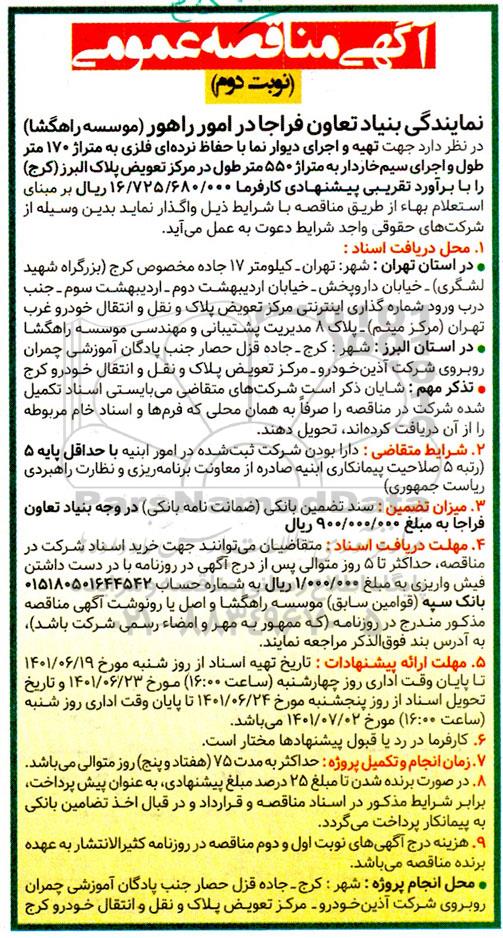 آگهی مناقصه عمومی
(نوبت دوم)
نمایندگی بنیاد تعاون فراجا در امور راهور (موسسه راهگشا)
در نظر دارد جهت تهیه و اجرای دیوار نما با حفاظ نرده‌ای فلزی به متراژ ۱۷۰ متر
طول و اجرای سیم‌خاردار به متراژ ۵۵۰ متر طول در مرکز تعویض پلاک البرز (کرج)
را با برآورد تقریبی پیشنهادی کارفرما ۱۶/۷۲۵/۶۸۰/۰۰۰ ریال بر مبنای
استعلام بهاء از طریق مناقصه با شرایط ذیل واگذار نماید بدین وسیله از
شرکت‌های حقوقی واجد شرایط دعوت به عمل می‌آید.
۱. محل دریافت اسناد :
● در استان تهران : شهر: تهران - کیلومتر ۱۷ جاده مخصوص کرج (بزرگراه شهید
لشگری) - خیابان داروپخش - خیابان اردیبهشت دوم - اردیبهشت سوم - جنب
درب ورود شماره گذاری اینترنتی مرکز تعویض پلاک و نقل و انتقال خودرو غرب
تهران (مرکز میثم) - پلاک ۸ مدیریت پشتیبانی و مهندسی موسسه راهگشا
● در استان البرز : شهر : کرج - جاده قزل حصار جنب پادگان آموزشی چمران
روبروی شرکت آذین‌خودرو - مرکز تعویض پلاک و نقل و انتقال خودرو کرج
● تذکر مهم : شایان ذکر است شرکت‌های متقاضی می‌بایستی اسناد تکمیل
شده شرکت در مناقصه را صرفاً به همان محلی که فرم‌ها و اسناد خام مربوطه
را از آن دریافت کرده‌اند، تحویل دهند.
۲. شرایط متقاضی : دارا بودن شرکت ثبت‌شده در امور ابنیه با حداقل پایه ۵
(رتبه ۵ صلاحیت پیمانکاری ابنیه صادره از معاونت برنامه‌ریزی و نظارت راهبردی
ریاست جمهوری)
۳. میزان تضمین : سند تضمین بانکی (ضمانت نامه بانکی) در وجه بنیاد تعاون
فراجا به مبلغ ۹۰۰/۰۰۰/۰۰۰ ریال
۴. مهلت دریافت اسناد : متقاضیان می‌توانند جهت خرید اسناد شرکت در
مناقصه، حداکثر تا ۵ روز متوالی پس از درج آگهی در روزنامه با در دست داشتن
فیش واریزی به مبلغ ۱/۰۰۰/۰۰۰ ریال به شماره حساب ۰۱۵۱۸۰۵۰۱۶۴۴۵۴۲
بانک سپه (قوامین سابق) موسسه راهگشا و اصل یا رونوشت آگهی مناقصه
مذکور مندرج در روزنامه (که ممهور به مهر و امضاء رسمی شرکت باشد)،
به آدرس بند فوق‌الذکر مراجعه نمایند.
۵. مهلت ارائه پیشنهادات : تاریخ تهیه اسناد از روز شنبه مورخ ۱۴۰۱/۰۶/۱۹
تا پایان وقت اداری روز چهارشنبه (ساعت ۱۶:۰۰) مورخ ۱۴۰۱/۰۶/۲۳ و تاریخ
تحویل اسناد از روز پنجشنبه مورخ ۱۴۰۱/۰۶/۲۴ تا پایان وقت اداری روز شنبه
(ساعت ۱۶:۰۰) مورخ ۱۴۰۱/۰۷/۰۲ می‌باشد.
۶. کارفرما در رد یا قبول پیشنهادها مختار است.
۷. زمان انجام و تکمیل پروژه : حداکثر به مدت ۷۵ (هفتاد و پنج) روز متوالی می‌باشد.
۸. در صورت برنده شدن تا مبلغ ۲۵ درصد مبلغ پیشنهادی، به عنوان پیش پرداخت،
برابر شرایط مذکور در اسناد مناقصه و قرارداد و در قبال اخذ تضامین بانکی
به پیمانکار پرداخت می‌گردد.
۹. هزینه درج آگهی‌های نوبت اول و دوم مناقصه در روزنامه کثیرالانتشار به عهده
برنده مناقصه می‌باشد.
● محل انجام پروژه : شهر : کرج - جاده قزل حصار جنب پادگان آموزشی چمران
روبروی شرکت آذین‌خودرو - مرکز تعویض پلاک و نقل و انتقال خودرو کرج